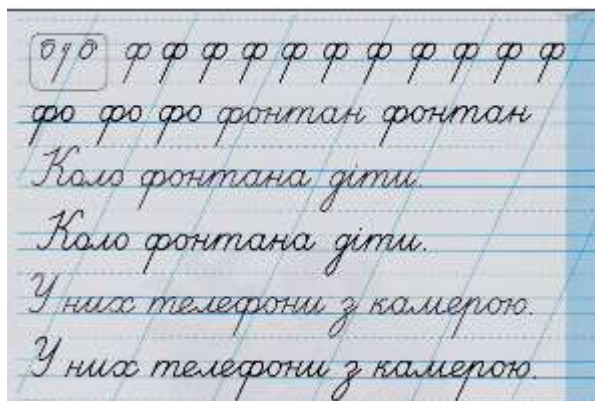 ф ф ф ф ф ф ф ф ф ф ф
фо фо фо фонтан фонтан
Коло фонтана діти.
Коло фонтана діти.
У них телефони з камерою.
У них телефони з камерою.